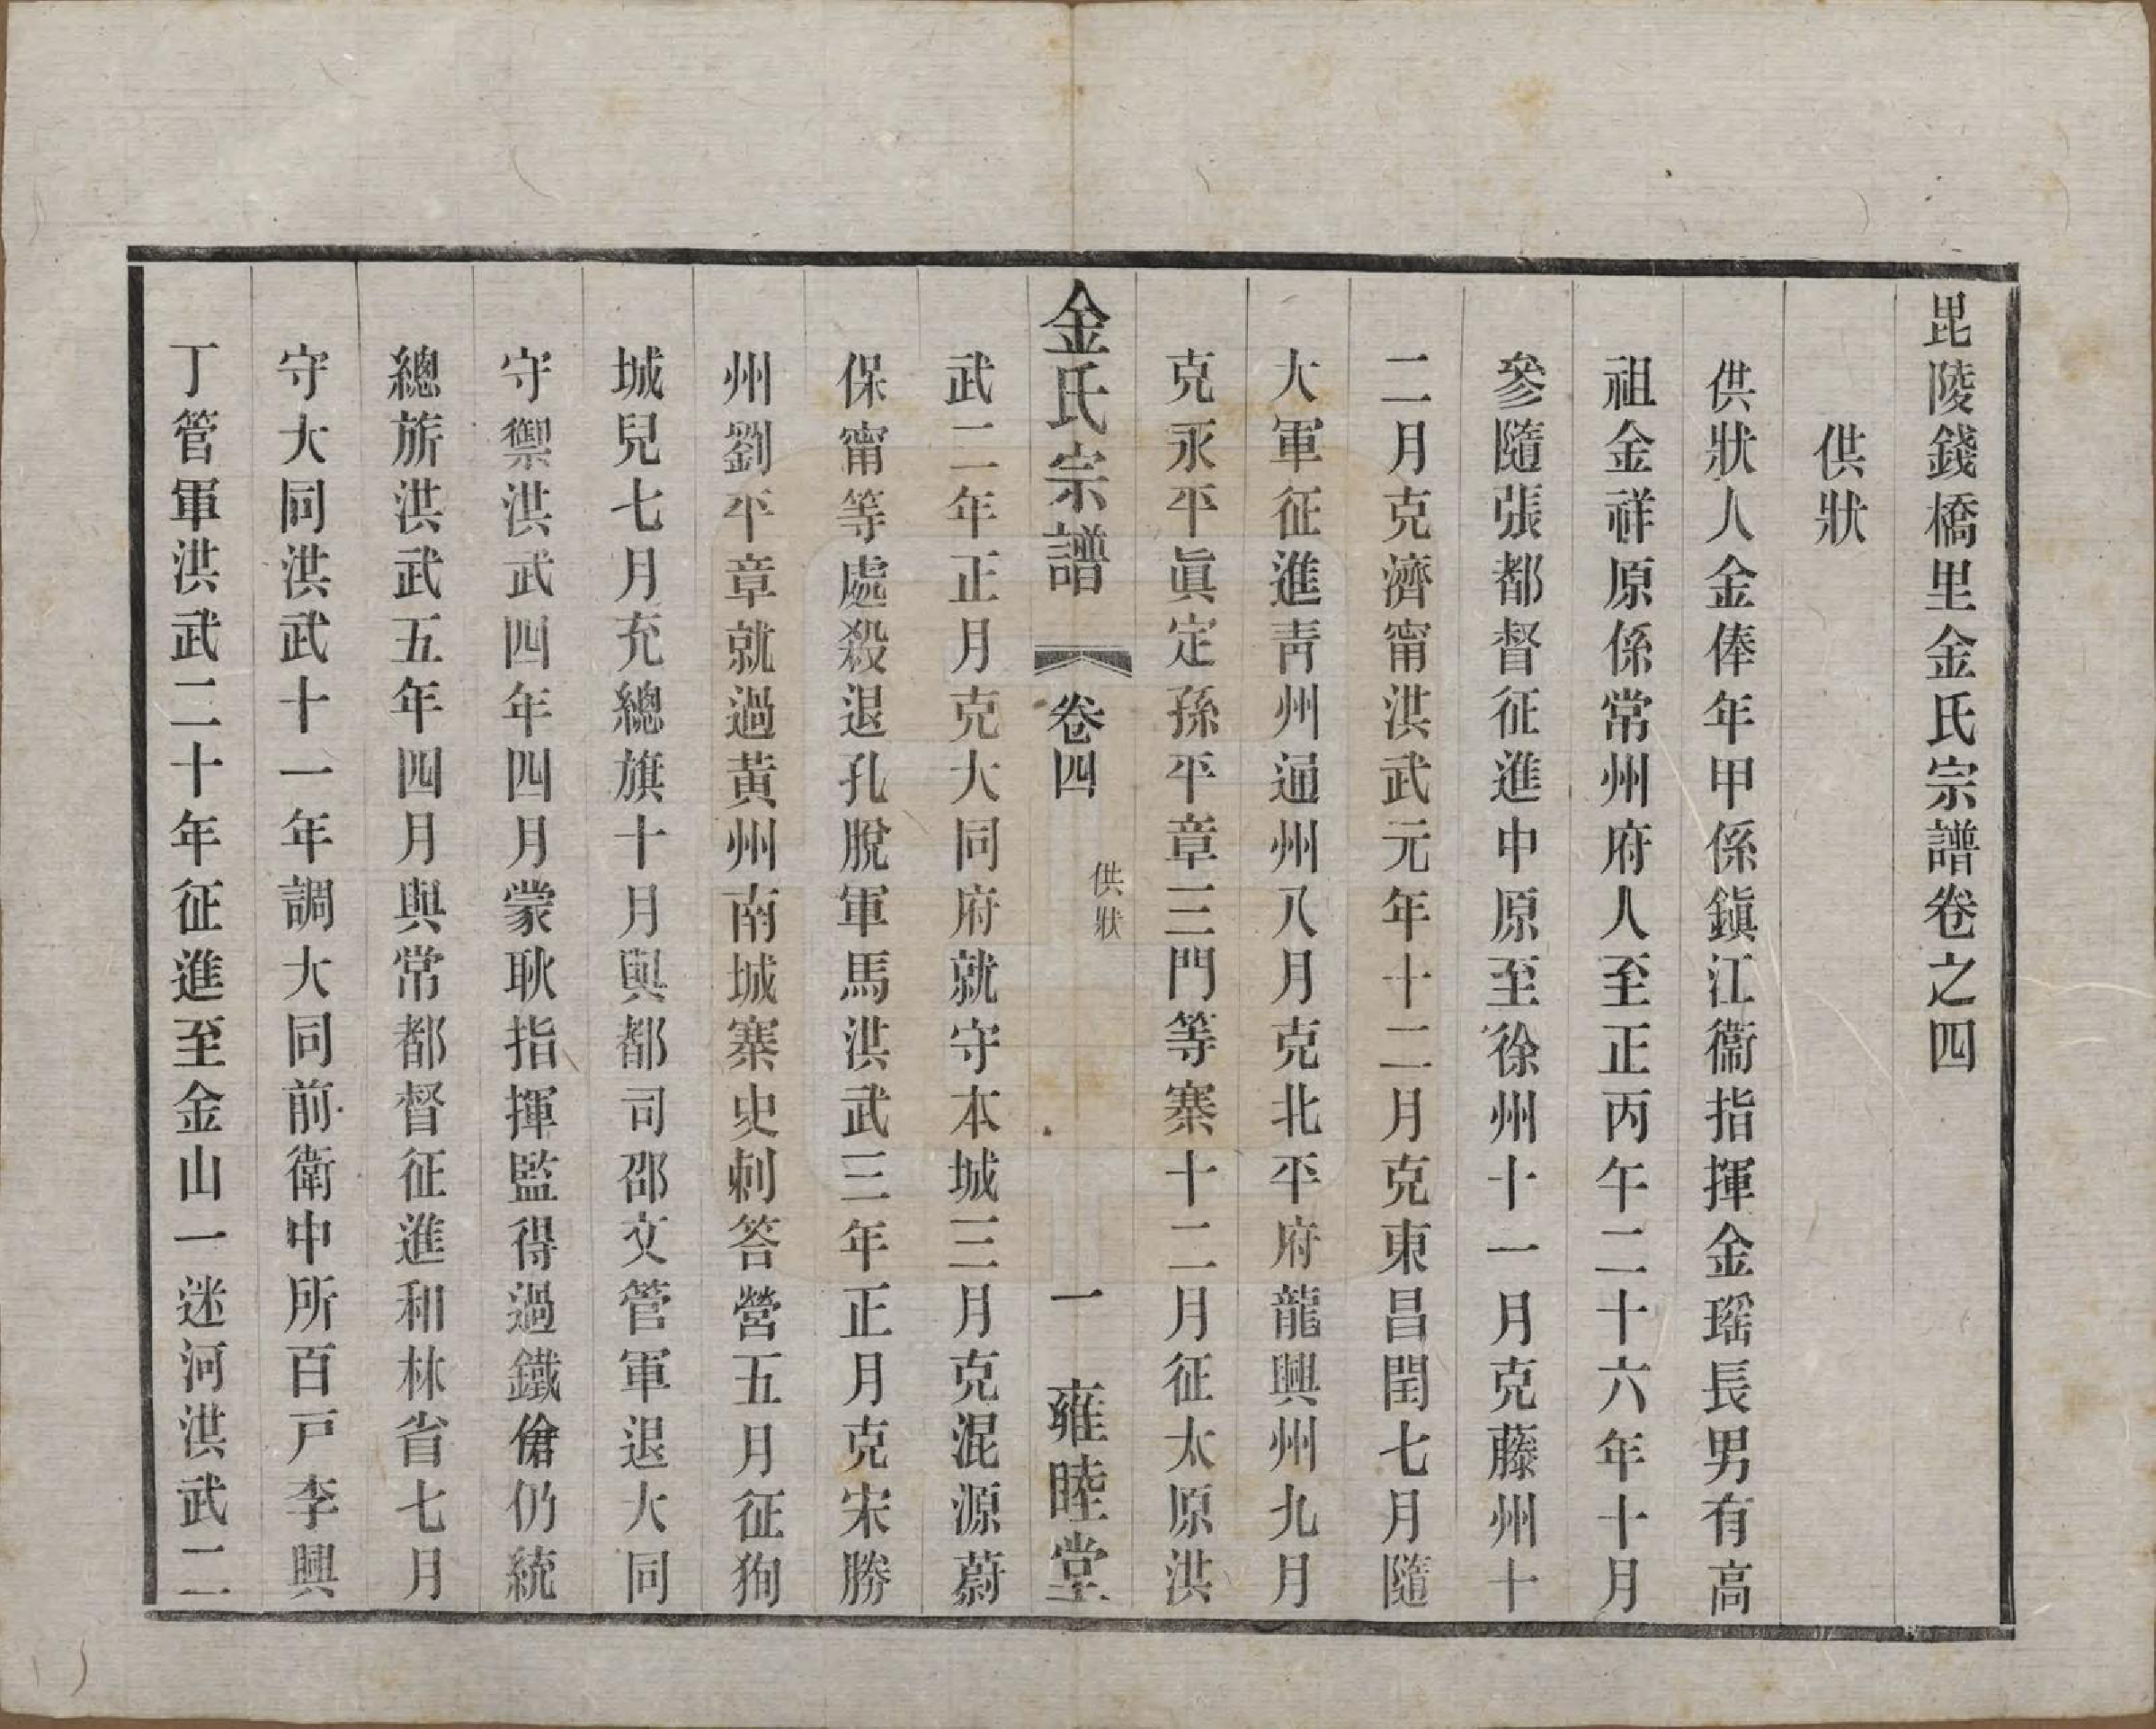 毘陵錢橋里金氏宗譜卷之四
供狀
供狀人金俸年甲係鎭江衞指揮金瑶長男有高
祖金祥原係常州府人至正丙午二十六年十月
參隨張都督征進中原至徐州十一月克藤州十
二月克濟甯洪武元年十二月克東昌閏七月隨
大軍征進青州通州八月克北平府龍興州九月
克永平眞定孫平章三門等寨十二月征太原洪
金氏宗譜
卷四
供狀
一
雍睦堂
武二年正月克大同府就守本城三月克混源蔚
保甯等處殺退孔脫軍馬洪武三年正月克宋勝
州劉平章就過黃州南城寨史刺答營五月征狥
城兒七月充總旗十月與都司邵文管軍退大同
守禦洪武四年四月蒙耿指揮監得過鐵傖仍統
總旂洪武五年四月與常都督征進和林省七月
守大同洪武十一年調大同前衛中所百戸李興
丁管軍洪武二十年征進至金山一迷河洪武二